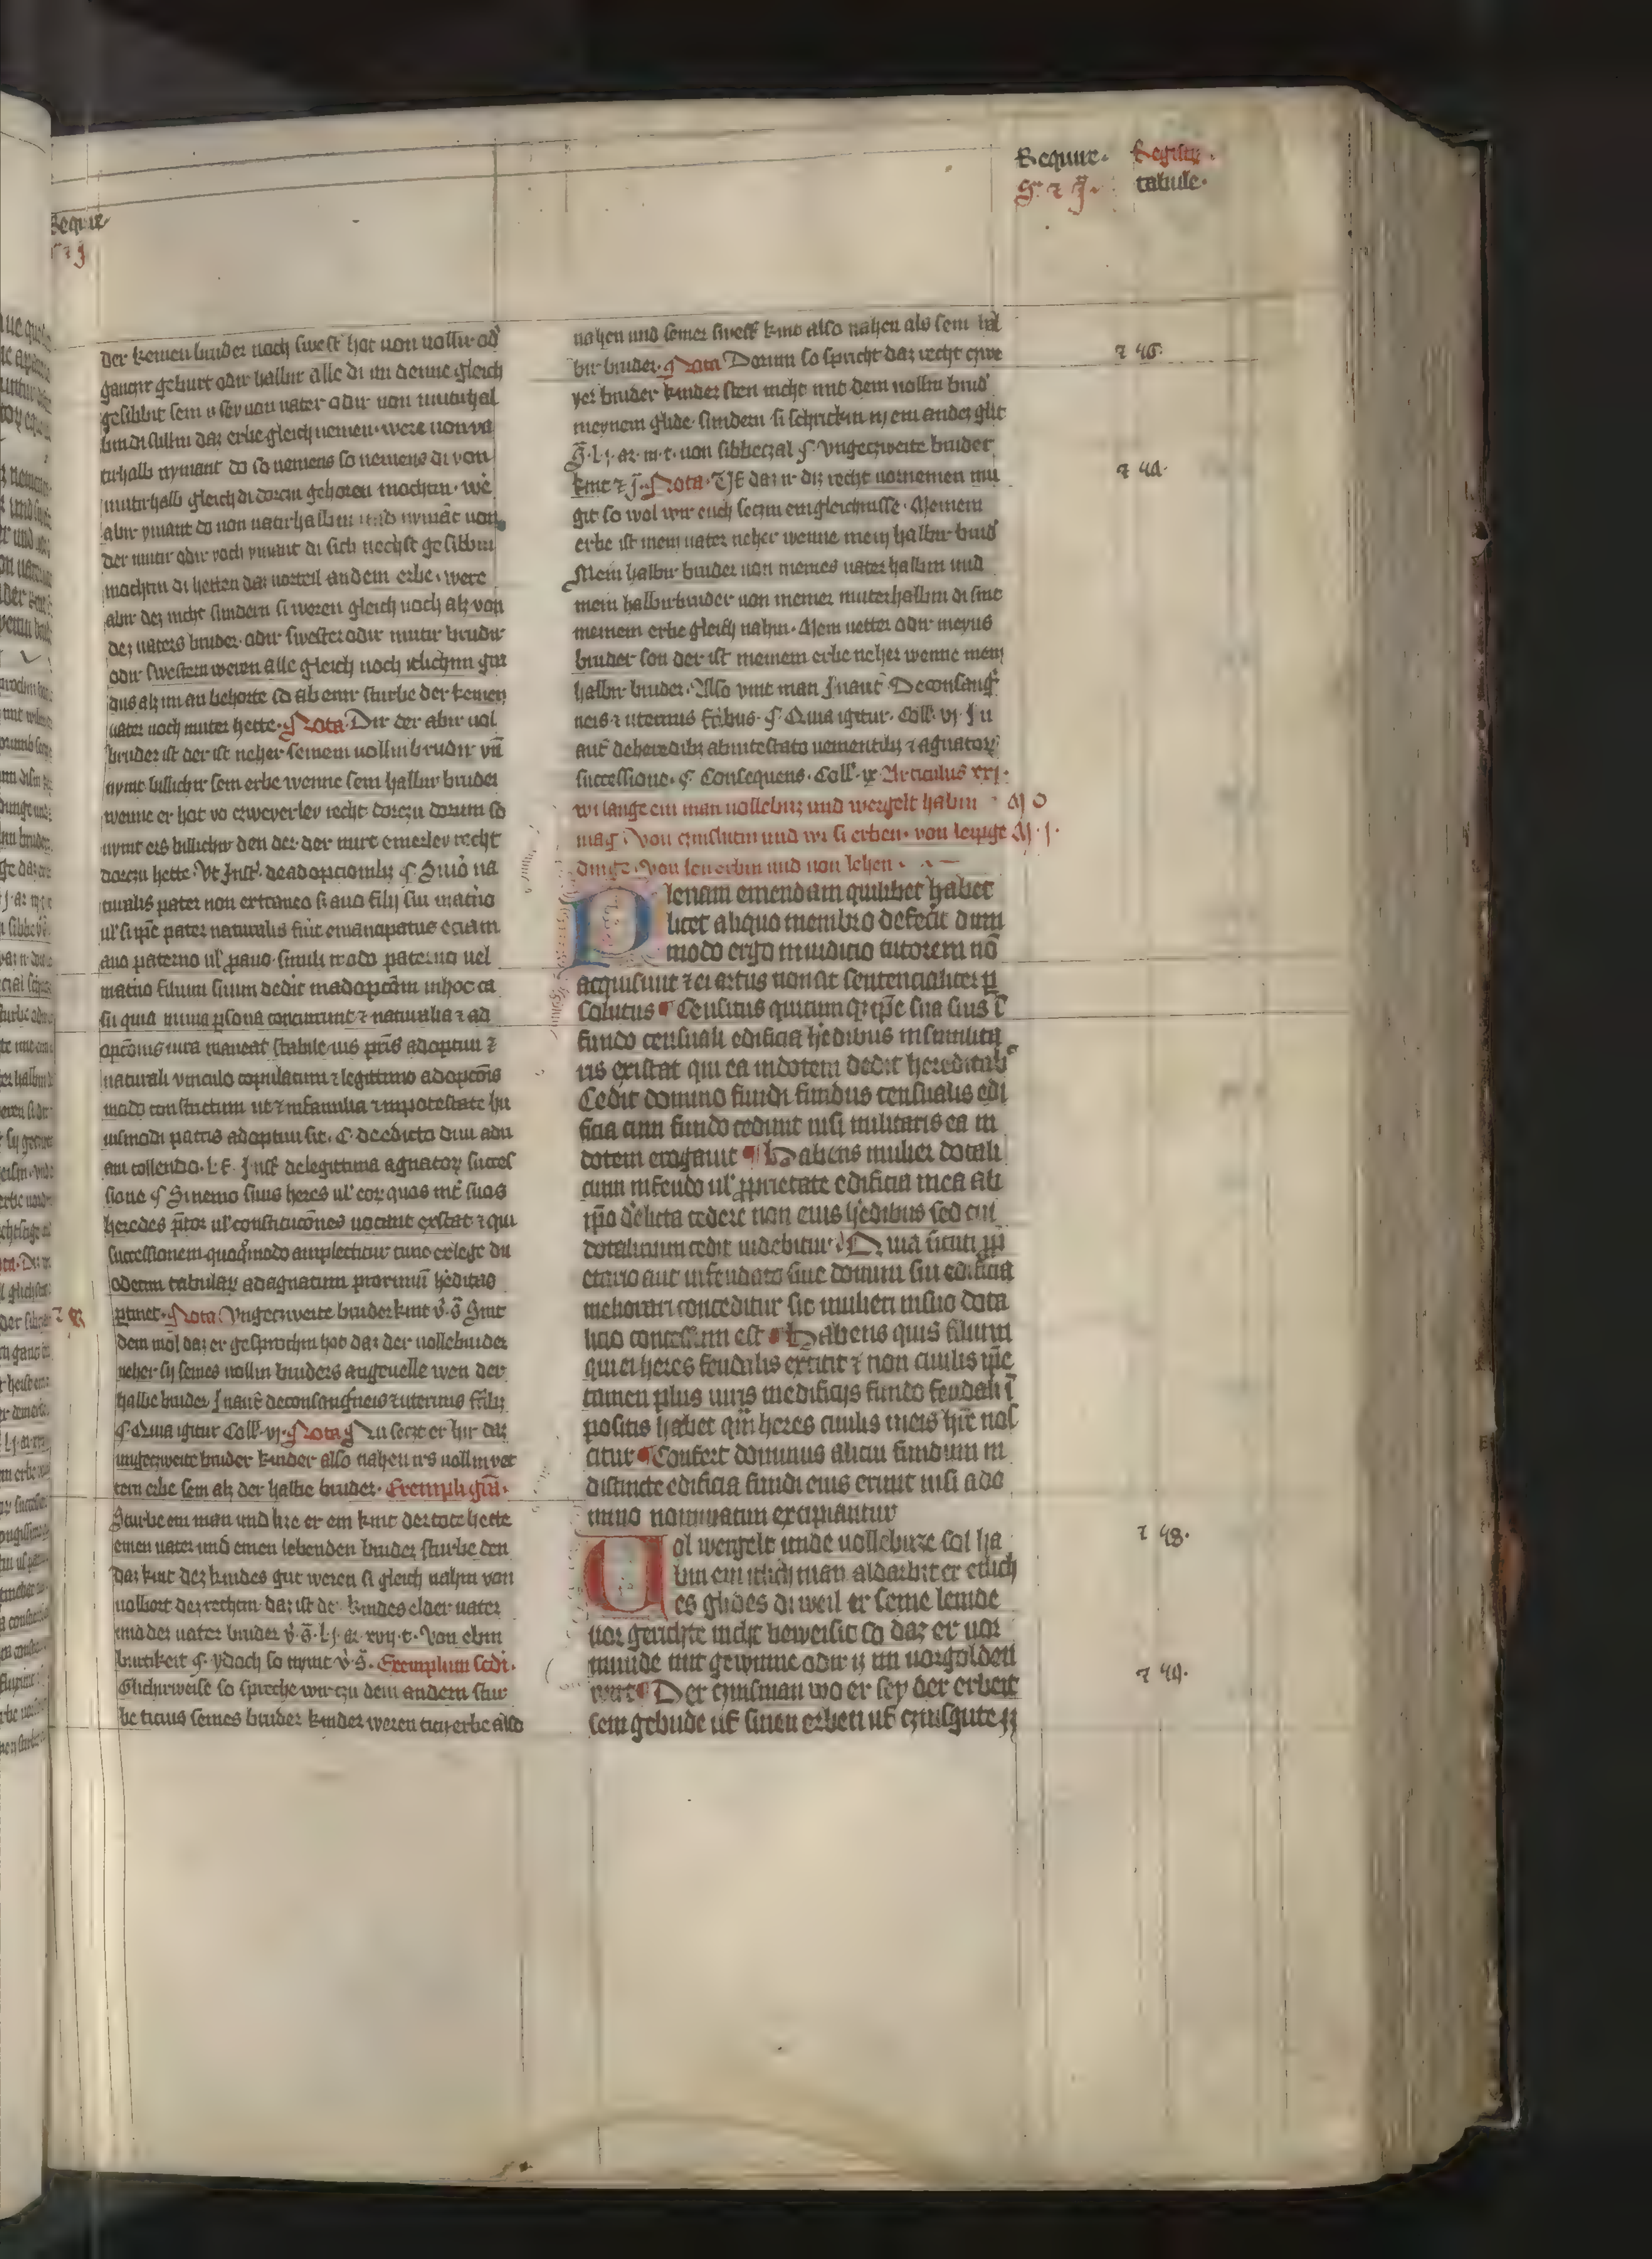 Require· Registrum
§ ⁊ J· tabule·
Requir·
der keinen bruder noch swest' hot von vollir od'
ganczir geburt odir halbir alle di im denne gleich
gesibbit sein is sey von vater odir von mutirhal
bin di sullin daz erbe gleich nemen· were von va
tirhalb nymant do so nemens so nemens di von
mutirhalb gleich di dorein gehoren mochtin· we'
abir ymant do von vatirhalbin und nymāt von
der mutir odir noch ymant di sich nechst gesibbin
mochtin di hetten daz vorteil an dem erbe· were
abir dez nicht sundern si weren gleich noch alz von
dez vaters bruder· odir swester odir mutir brudir
odir swestern weren alle gleich noch itlichem gut
dus alz im an behorte so ab einr sturbe der keinen
vater noch muter hette· Nota· Dir der abir vol
bruder ist der ist neher seinem vollin brudir vn̄
nymt billichir sein erbe wenne sein halbir bruder
wenne er hot vō czweyerley recht dorczu dorum so
nymt ers billichir den der· der nurt einerley recht
dorczu hette· Vt Inst'· de adopcionibz § S; uō na
turalis pater non extraneo s; auo filij sui mat'no
ul' si ip̄e pater naturalis fuit emancipatus eciam
auo paterno ul' ꝓauo· simili modo paterno uel
mat'no filium suum dedit in adopcōm in hoc ca
su quia in una ꝑsona concurrunt ⁊ naturalia ⁊ ad
opcōnis iura maneat stabile ius pr̄is adoptiui ⁊
naturali vinculo copulatum ⁊ legittimo adopcōis
modo constrictum ut ⁊ in familia ⁊ in potestate hu
iusmodi patris adoptiui sit· C· de edicto diui adri
ani tollendo· l· f· Inst' de legittima agnator' succes
sione § Si nemo suus heres ul' eor' quos int' suos
heredes p̄tor ul' constitucōnes uocant existat ⁊ qui
successionem quoq'modo amplectitur tunc ex lege du
odecim tabular' ad agnatum proximū heditas
ꝑtinet· Nota Vngeczweite bruder kint v̇· ḡ· Sint
dem mol daz er gesprochin hot daz der vollebruder
neher sij seines vollin bruders angeuelle wen der
halbe bruder Jn aut' de consanguineis ⁊ uterinis fr̄ibz
§· Quia igitur Coll'· vj· Nota § Nu seczt er hir daz
ungeczweite bruder kinder also nahen irs vollin vet
tern erbe sein alz der halbe bruder· Exempli gr̄a·
Sturbe ein man und lize er ein kint der tote hette
einen vater und einen lebenden bruder sturbe den
daz kint dez kindes gut weren si gleich nahin von
volbort dez rechtin· daz ist de' kindes elder vater
und dez vater bruder v̇· ḡ· l· j· ar· xvij· t· Von ebin
burtikeit § ydoch so nymt v̇· ḡ· Exemplum scdi·
Glichirweise so spreche wir czu dem andern stur
be ticius seines bruder kinder weren czu erbe also
nahen und seiner swest' kint also nahen als sein hal
bir bruder· Nota Dorum so spricht daz recht czwe
yer bruder kinder sten nicht mit dem vollin brud'
in eynem glide· sundern si schrickin in ein ander glit
v̇· ḡ· l· j· ar· iij· t· von sibbeczal § Vngeczweite bruder
kint ⁊ j· Nota· Uf daz ir diz recht vornemen mu
git so wol wir euch seczin ein gleichnisse· Meinem
erbe ist mein vater neher wenne mein halbir brud'
Mein halbir bruder von meines vater halbin und
mein halbir bruder von meiner muterhalbin di sint
meinem erbe gleich nahin· Mein vetter odir meyns
bruder son der ist meinem erbe neher wenne mein
halbir bruder· Also vint man Jn aut' De consang'
neis ⁊ uterinis fr̄ibus· §· Quia igitur· Coll'· vj· Jn
aut' de heredibz ab intestato uenientibz ⁊ agnator'
successione· § Consequens· Coll'· ix Articulus xxj·
wi lange ein man vollebuz und wergelt habin · M O
mag· von czinslutin und wi si erben· von leipge M· J·
dinge· von len erbin und von lehen·
Plenam emendam quilibet habet
licet aliquo membro defecit dum
modo ergo in iudicio tutorem nō
acquisiuit ⁊ ei artus non at sentencialiter ꝑ
solutus Censitus quicum qꝫ ip̄e sua suis ī
fundo censuali edificia h'edibus nisi milita
ris existat qui ea in dotem dedit hereditab'
Cedit domino fundi fundus censualis edi
ficia cum fundo cedunt nisi militaris ea in
dotem erogauit Habens mulier dotali
cium in feudo ul' ꝓprietate edificia in ea ab
ip̄a d'elicta cedere non eius h'edibus sed cui
dotalicium cedit uidebitur· Quia sicuti ꝓp
etario aut infeudato siue domini sui edificia
meliorari conceditur sic mulieri in suo dota
licio concessum est Habens quis filium
qui ei heres feudalis extitit ⁊ non ciuilis ip̄e
tamen plus iuris in edificijs fundo feudali ī
positis habet qm̄ heres ciuilis in eis h're nos
citur Confert dominus alicui fundum in
distincte edificia fundi eius erunt nisi a do
mino nominatim excipiantur
Vol wergelt unde vollebuze sol ha
bin ein itlich man aldarbit er etlich
es glides di weil er seine lemde
vor gerichte nicht beweisit so daz er vor
munde mit gewinne odir iz im vorgolden
wirt Der czinsman wo er sey der erbeit
sein gebude uf sinen erben uf czinsgute iz
⁊ 46·
⁊ 4α·
⁊ 48·
⁊ 49·